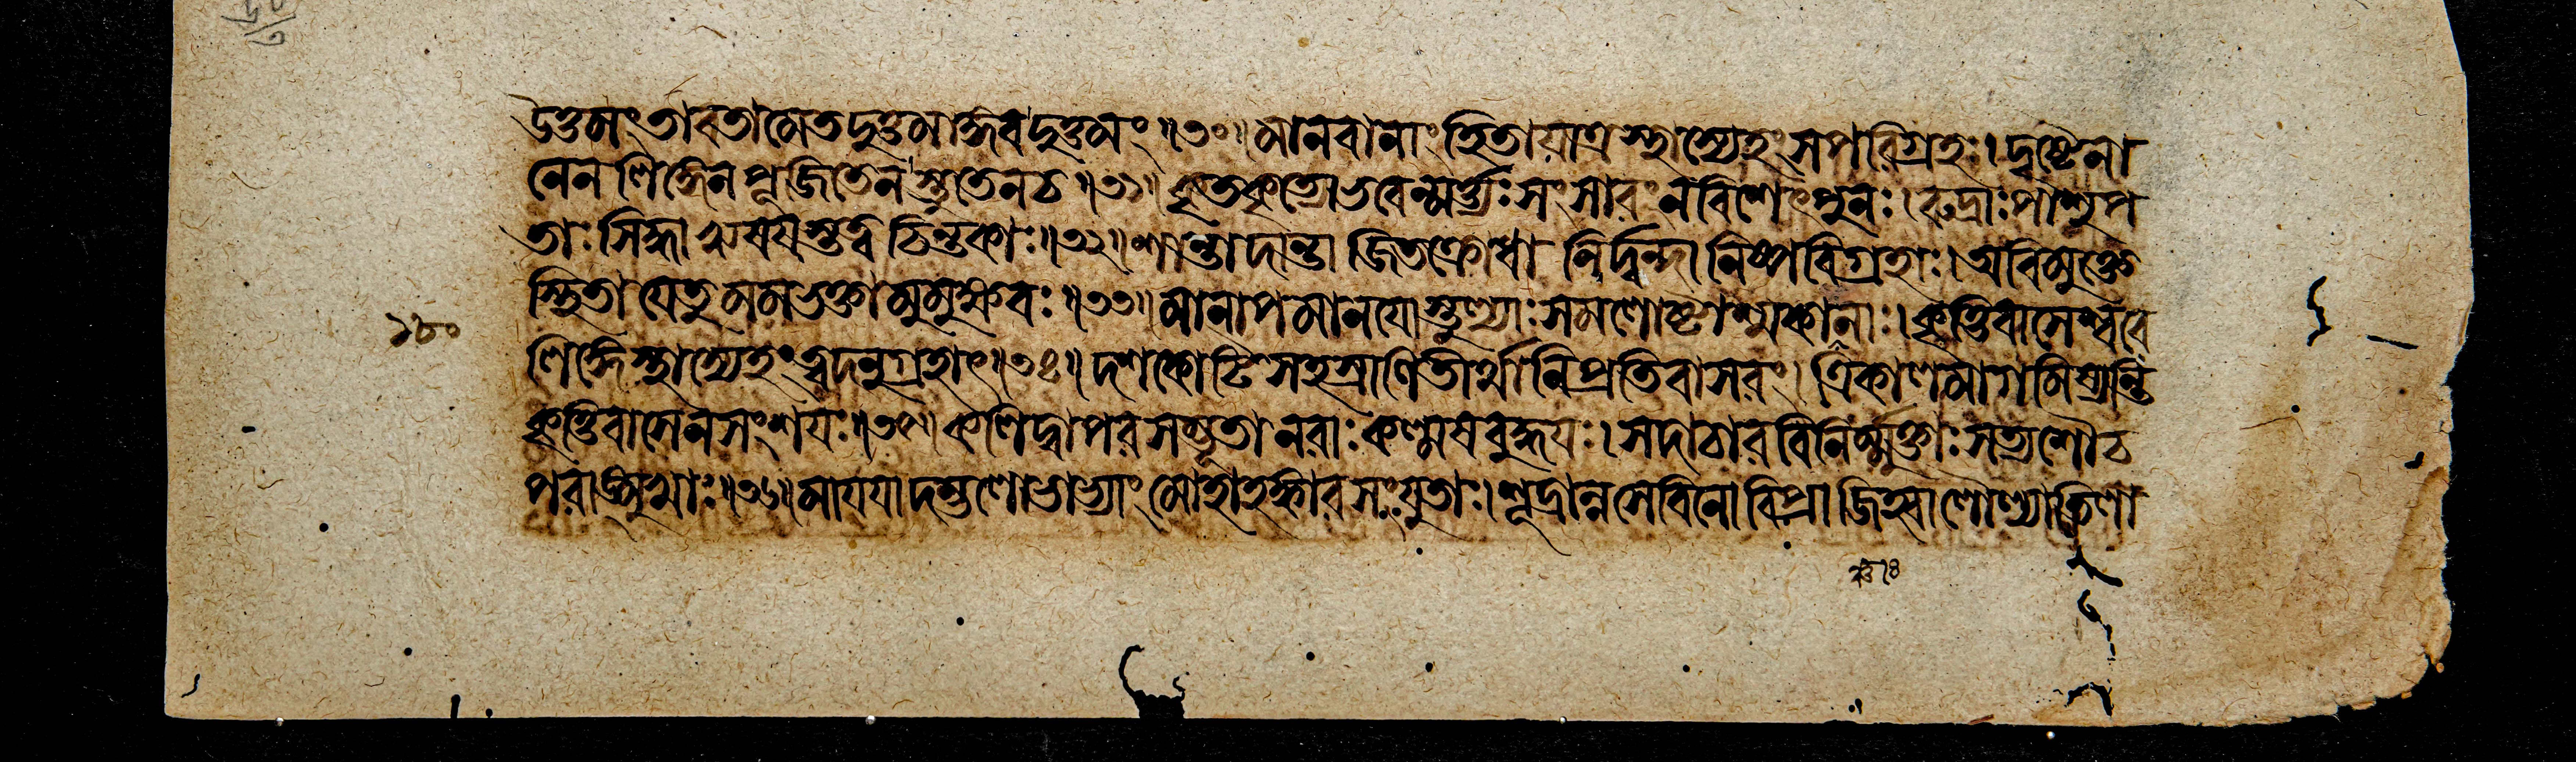 ত্তমং তাবতামেতদুত্তমাদ্দেবদুত্তমং ॥৩০॥ মানবানাং হিতায়াত্র স্থাস্যেহং সপরিগ্রহঃ। দৃষ্টেনা
নেন লিঙ্গেন পূজিতেন স্তুতেন চ ॥৩১॥ কৃতকৃত্যো ভবেন্মর্ত্ত্যঃ সংসারং ন বিশেৎ পুনঃ। রুদ্রাঃ পাশুপ
তাঃ সিদ্ধা ঋষয়স্তত্ত্বচিন্তকাঃ ॥৩২॥ শান্তা দান্তা জিতক্রোধা নির্দ্বন্দ্বা নিষ্পরিগ্রহাঃ। অবিমুক্তে
স্থিতা যে তু মম ভক্তা মুমুক্ষবঃ ॥৩৩॥ মানাপমানয়োস্তুল্যাঃ সমলোষ্টাশ্মকাঞ্চনাঃ। কৃত্তিবাসেশ্বরে
১৮০
লিঙ্গে স্থাস্যেহং ত্বদনুগ্রহাৎ ॥৩৪॥ দশকোটিসহস্রাণি তীর্থানি প্রতিবাসরং। ত্রিকালমাগমিষ্যন্তি
কৃত্তিবাসে ন সংশয়ঃ ॥৩৫॥ কলিদ্বাপরসম্ভূতা নরাঃ কল্মষবুদ্ধয়ঃ। সদাচারবিনির্ম্মুক্তাঃ সত্যশৌচ
পরাঙ্মুখাঃ ॥৩৬॥ মায়য়া দম্ভলোভাভ্যাং মোহাহঙ্কারসংযুতাঃ। শূদ্রান্নসেবিনো বিপ্রা জিহ্বালৌল্যা